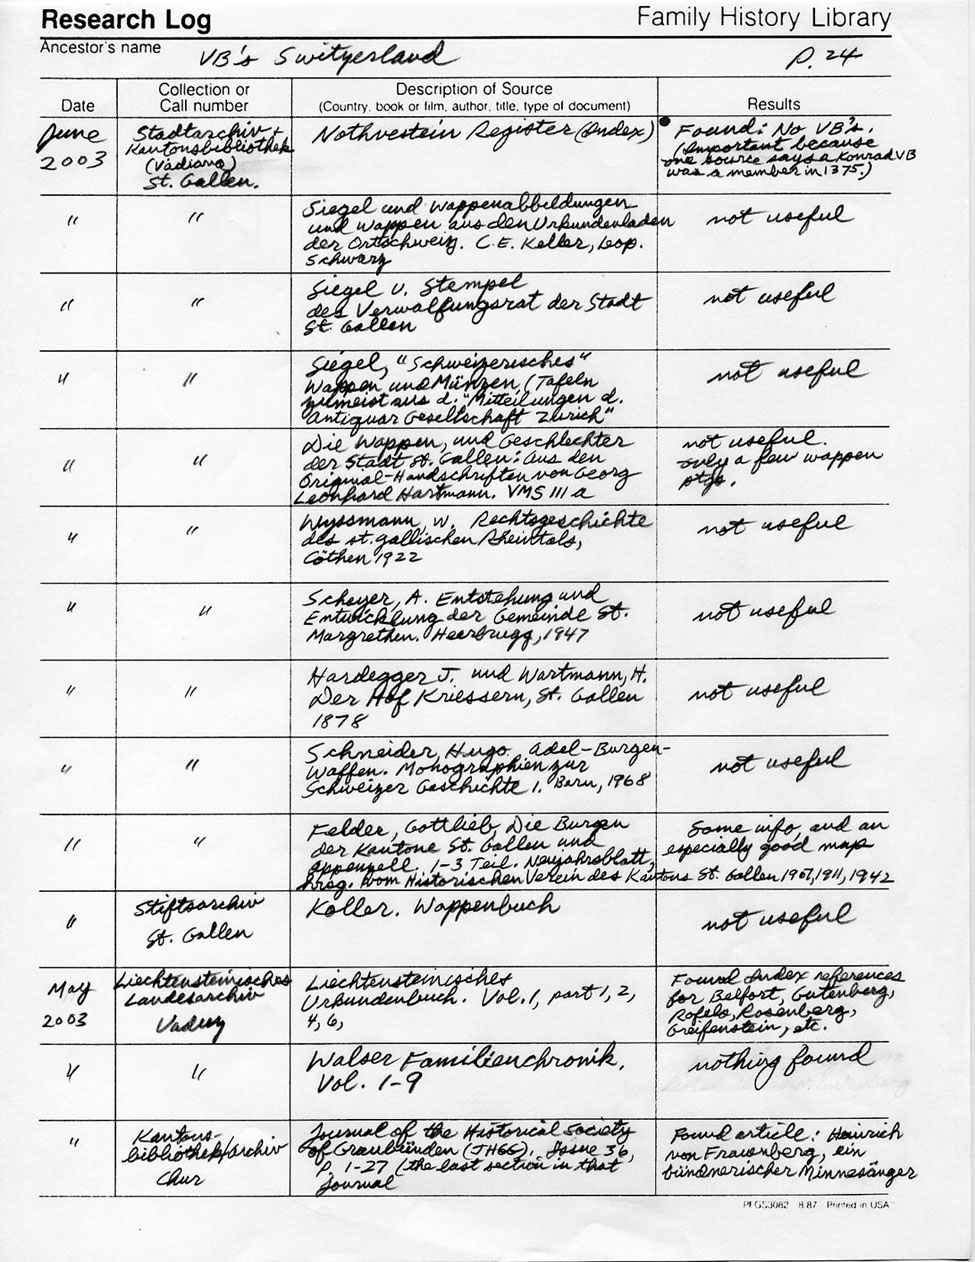 Research Log
Family History Library
Ancestor's name
VB's Switzerland
p. 24
Date
Collection or
Call number
Description of Source
(Country, book or film, author, title, type of document)
Results
June
2003
Stadtarchiv +
Kantonsbibliothek
(Vadiana)
St. Gallen.
Nothvestein Register (Index)
Found: No VB's.
(Important because
one source says a Konrad VB
was a member in 1375.)
"
"
Siegel und Wappenabbildungen
und Wappen aus den Urkundenladen
der Ortschweiz. C.E. Keller, Leop.
Schwarz
not useful
"
"
Siegel u. Stempel
des Verwalfungsrat der Stadt
St. Gallen
not useful
"
"
Siegel, "Schweizerisches"
Wappen und Münzen, (Tafeln
zumeist aus d. "Mitteilungen d.
Antiquar Gesellschaft Zürich"
not useful
"
"
Die Wappen, und Geschlechter
der Stadt St. Gallen: aus den
Original-Handschriften von Georg
Leonhard Hartmann. VMS III a
not useful.
only a few wappen
"
"
Wyssmann, W. Rechtsgeschichte
des st. gallischen Rheintals,
Cöthen 1922
not useful
"
"
Scheyer, A. Entstehung und
Entwicklung der Gemeinde St.
Margrethen. Heerbrugg, 1947
not useful
"
"
Hardegger J. und Wartmann, H.
Der Hof Kriessern, St. Gallen
1878
not useful
"
"
Schneider, Hugo, Adel-Burgen-
Waffen. Monographien zur
Schweizer Geschichte 1. Bern, 1968
not useful
"
"
Felder, Gottlieb, Die Burgen
der Kantone St. Gallen und
Appenzell. 1-3 Teil. Neujahrsblatt,
hrsg. vom Historischen Verein des Kantons St. Gallen 1907, 1911, 1942
Some info, and an
especially good map
"
Stiftsarchiv
St. Gallen
Koller. Wappenbuch
not useful
May
2003
Liechtensteinisches
Landesarchiv
Vaduz
Liechtensteinisches
Urkundenbuch. Vol. 1, part 1, 2,
4, 6,
Found Index references
for Belfort, Gutenberg,
Rofels, Rosenberg,
Greifenstein, etc.
"
"
Walser Familienchronik.
Vol. 1-9
nothing found
"
Kantons-
bibliothek/archiv
Chur
Journal of the Historical Society
of Graubünden (JHGG), Issue 36,
p. 1-27 (the last section in that
journal
Found article: Heinrich
von Frauenberg, ein
bündnerischer Minnesänger
PFGS3082 8.87 Printed in USA